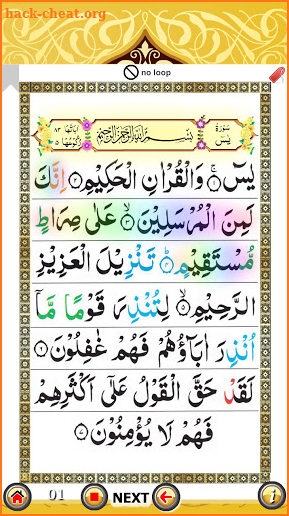 hack-cheat.org
no loop
سورة يس
بسم الله الرحمن الرحيم
اٰيَاتُهَا ٨٣
رُكُوْعُهَا ٥
يٰسٓ ۝١ وَالْقُرْاٰنِ الْحَكِيْمِ ۝٢ اِنَّكَ
لَمِنَ الْمُرْسَلِيْنَ ۝٣ عَلٰى صِرَاطٍ
مُّسْتَقِيْمٍ ۝٤ تَنْزِيْلَ الْعَزِيْزِ
الرَّحِيْمِ ۝٥ لِتُنْذِرَ قَوْمًا مَّاۤ
اُنْذِرَ اٰبَآؤُهُمْ فَهُمْ غٰفِلُوْنَ ۝٦
لَقَدْ حَقَّ الْقَوْلُ عَلٰٓى اَكْثَرِهِمْ
فَهُمْ لَا يُؤْمِنُوْنَ ۝٧
01 NEXT
hack-cheat.org